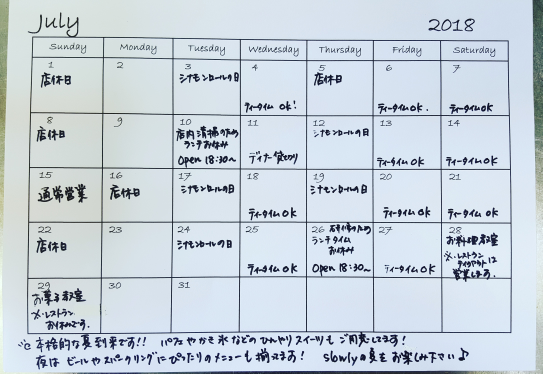 July 2018
Sunday Monday Tuesday Wednesday Thursday Friday Saturday
1 2 3 4 5 6 7
店休日 シナモンロールの日 店休日
ティータイム OK! ティータイムOK. ティータイムOK
8 9 10 11 12 13 14
店休日 店内清掃のため シナモンロールの日
ランチお休み
Open 18:30~ ディナー貸切り ティータイムOK ティータイムOK
15 16 17 18 19 20 21
通常営業 店休日 シナモンロールの日 シナモンロールの日
ティータイムOK ティータイムOK ティータイムOK
22 23 24 25 26 27 28
店休日 シナモンロールの日 研修のため お料理教室
ランチタイム ※レストラン
お休み テイクアウトは
ティータイムOK Open 18:30~ ティータイムOK 営業します。
29 30 31
お菓子教室
※レストラン
お休みです。
本格的な夏到来です!! パフェやかき氷などのひんやりスイーツもご用意してます!
夜はビールやスパークリングにぴったりのメニューも揃えてます! slowlyの夏をお楽しみ下さい♪